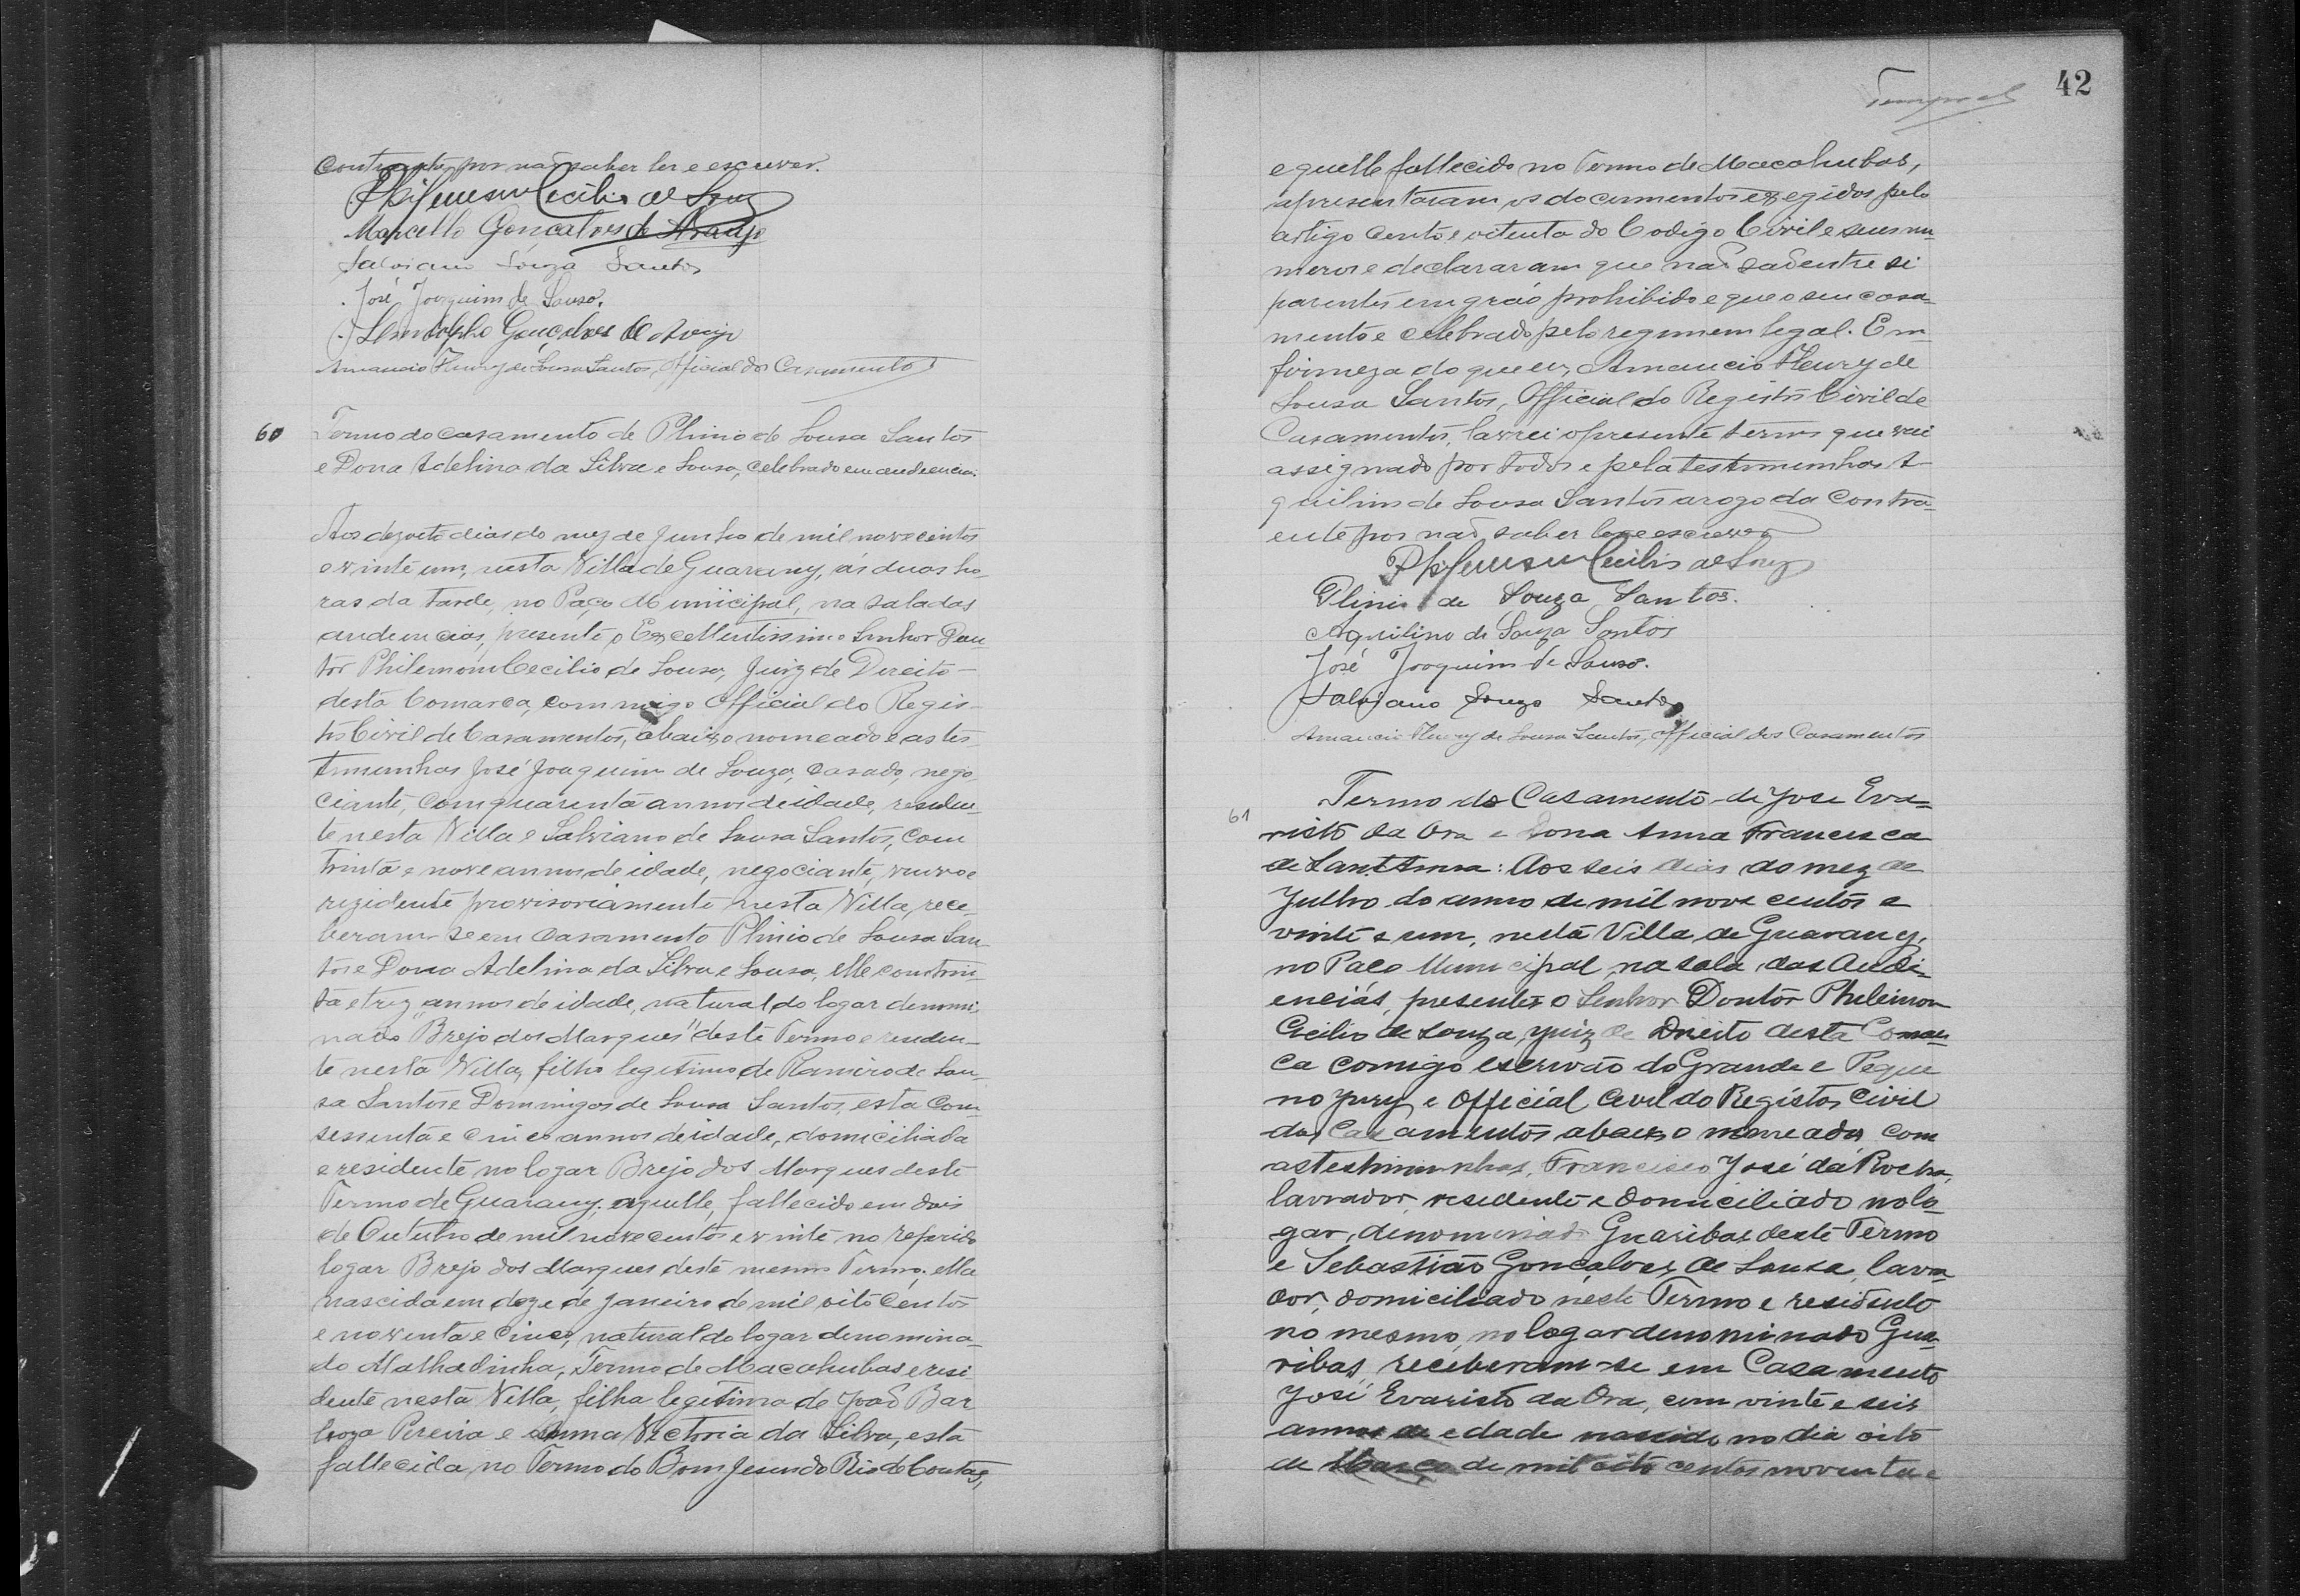 contrante, por não saber ler e escrever.
Philemon Cecilio de Souza
Marcello Gonçalves de Araujo
Salviano Souza Santos
José Joaquim de Sousa.
Gonçalves de Araujo
Amancio Fleury de Sousa Santos, Official dos Casamentos
60
Termo do casamento de Plinio de Sousa Santos
e Dona Adelina da Silva e Sousa, celebrado em audiencia.
Aos dezoito dias do mez de Junho de mil novecentos
e vinte um, nesta Villa de Guarany, ás duas ho-
ras da tarde, no Paço Municipal, na sala das
audiencias, presente o Excellentissimo Senhor Dou-
tor Philemon Cecilio de Sousa, Juiz de Direito
desta Comarca, commigo Official do Regis-
tro Civil de Casamentos, abaixo nomeado e as tes-
timunhas José Joaquim de Souza, casado, nego-
ciante, com quarenta annos de idade, residen-
te nesta Villa e Salviano de Sousa Santos, com
trinta e nove annos de idade, negociante, viuvo e
rizidente provisoriamente nesta Villa, rece-
beram-se em casamento Plinio de Sousa San-
tos e Dona Adelina da Silva e Sousa, elle com trin-
ta e trez annos de idade, natural do logar denomi-
nado "Brejo dos Marques" deste Termo e residen-
te nesta Villa, filho legitimo de Ramiro de Sou-
sa Santos e Domingas de Sousa Santos, esta com
sessenta e cinco annos de idade, domiciliada
e residente no logar Brejo dos Marques deste
Termo de Guarany; aquelle, fallecido em dois
de Outubro de mil novecentos e vinte no referido
logar Brejo dos Marques deste mesmo Termo; ella
nascida em doze de Janeiro de mil oito centos
e noventa e cinco, natural do logar denomina-
do Malhadinha, Termo de Macahubas e resi-
dente nesta Villa, filha legitima de João Bar
boza Pereira e Anna Victoria da Silva, esta
fallecida no Termo do Bom Jesus do Rio de Contas,
42
equelle fallecido no Termo de Macahubas,
apresentaram os documentos exegidos pelo
artigo cento e oitenta do Codigo Civil e seus nu-
meros e declararam que não são entre si
parentes em gráo prohibido e que o seu casa-
mento e celebrado pelo regimem legal. Em
firmeza do que eu, Amancio Fleury de
Sousa Santos, Official do Registro Civil de
Casamentos, lavrei o presente termo que vai
assignado por todos e pela testimunhas A-
quilino de Sousa Santos arogo da contra-
ente por não saber ler e escrever
Philemon Cecilio de Souza
Plinio de Souza Santos.
Aquilino de Souza Santos
José Joaquim de Sousa.
Salviano Souza Santos
Amancio Fleury de Sousa Santos, Official dos Casamentos
61
Termo do Casamento de Jose Eva=
risto da Ora e Dona Anna Francisca
de Sant'Anna: Aos seis dias do mez de
Julho do anno de mil nove centos e
vinte e um, nesta Villa de Guarany,
no Paço Municipal, na sala das Audi-
encias, presentes o Senhor Doutor Philemon
Cecilio de Souza, juiz de Direito desta Comar
ca comigo escrivão do Grande e Peque
no Jury e Official Civel do Registos Civil
dos Casamentos abaixo nomeados com
as testimunhas, Francisco José da Rocha,
lavrador, residente e domiciliado no lo-
gar, denominado Guaribas deste Termo
e Sebastião Gonçalves de Sousa, lavra-
dor, domiciliado neste Termo e residente
no mesmo, no logar denominado Gua-
ribas, receberam-se em Casamento
José Evaristo da Ora, com vinte e seis
annos de edade nascido no dia oito
de Março de mil oito centos noventa e